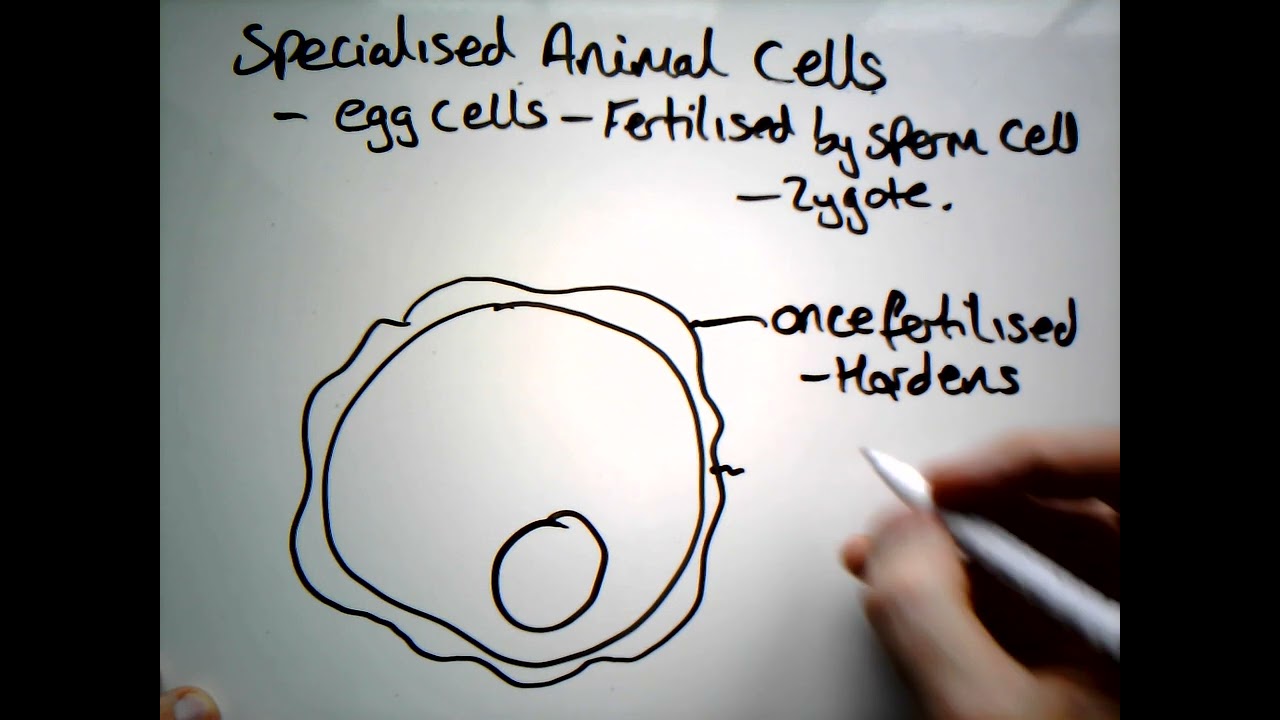 Specialised Animal Cells
- egg cells - Fertilised by sperm cell
- Zygote.
once fertilised
- Hardens